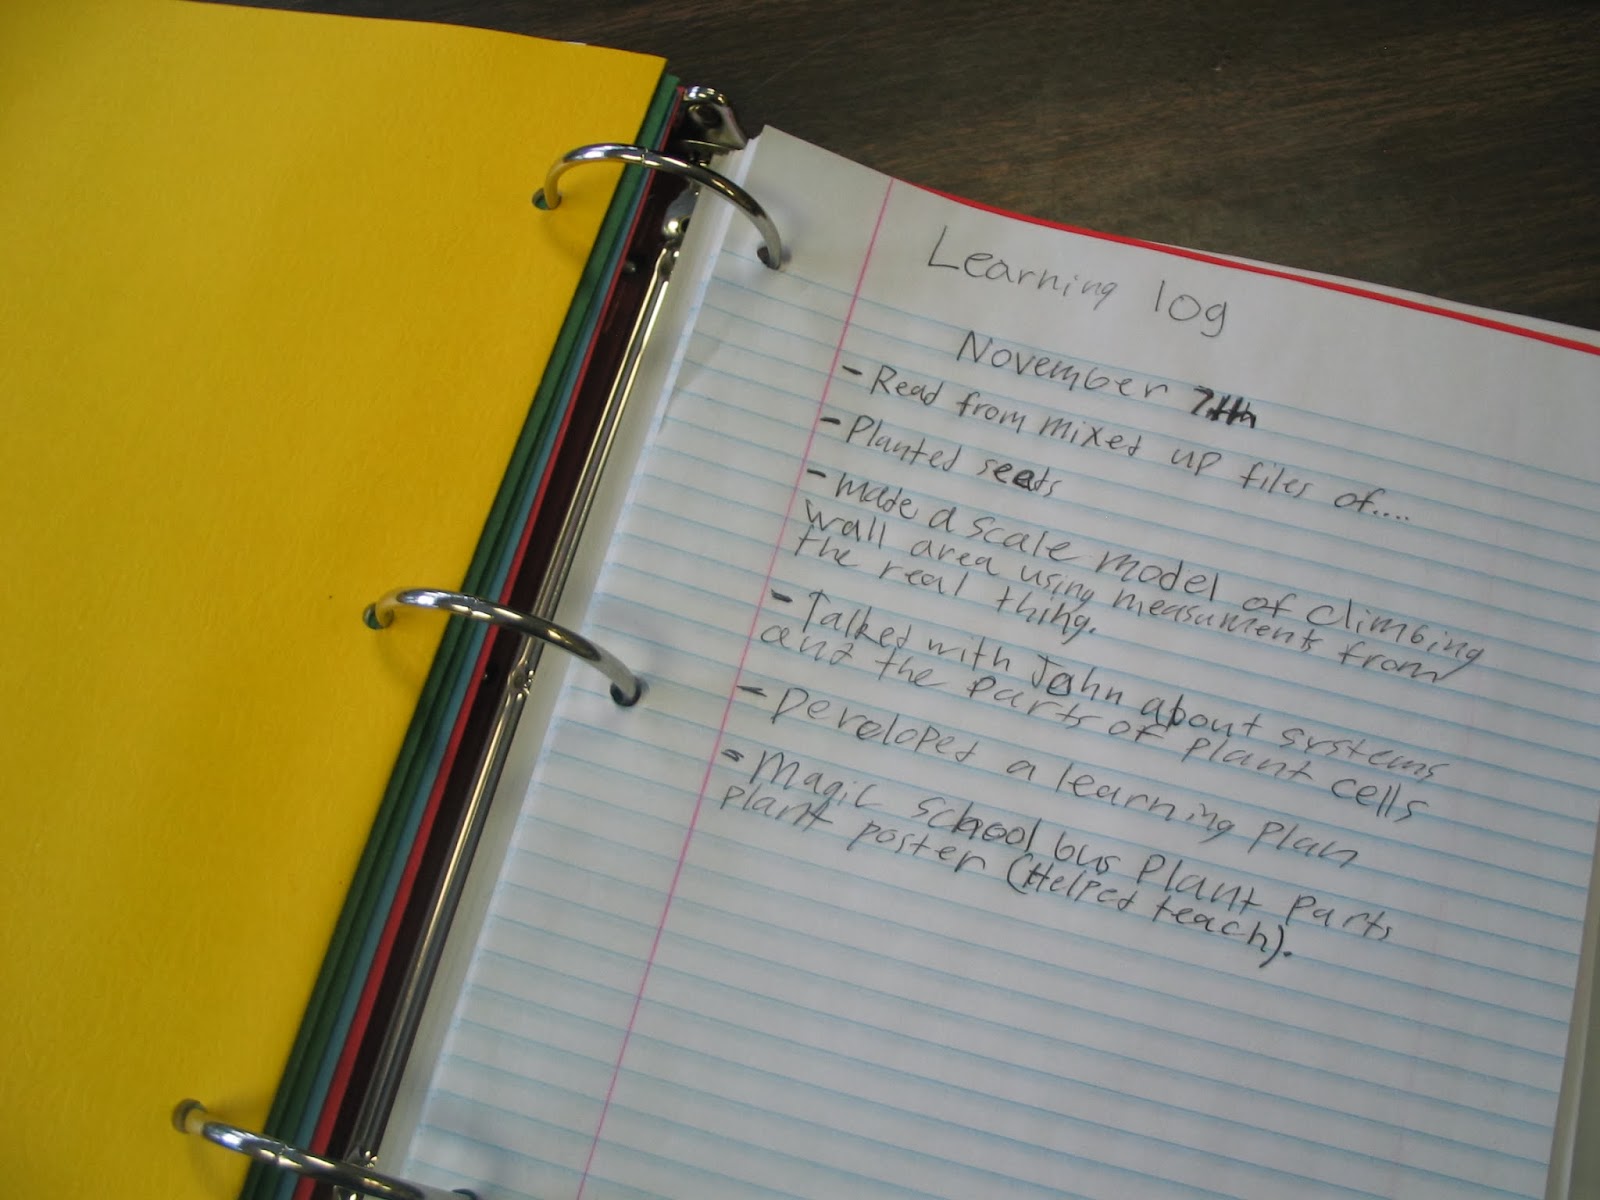 Learning log
November 7th
- Read from mixed up files of....
- Planted seeds
- Made a scale model of climbing
wall area using measuments from
the real thing.
- Talked with John about systems
and the parts of plant cells
- Developed a learning plan
- Magic school bus plant parts
plant poster (Helped teach).